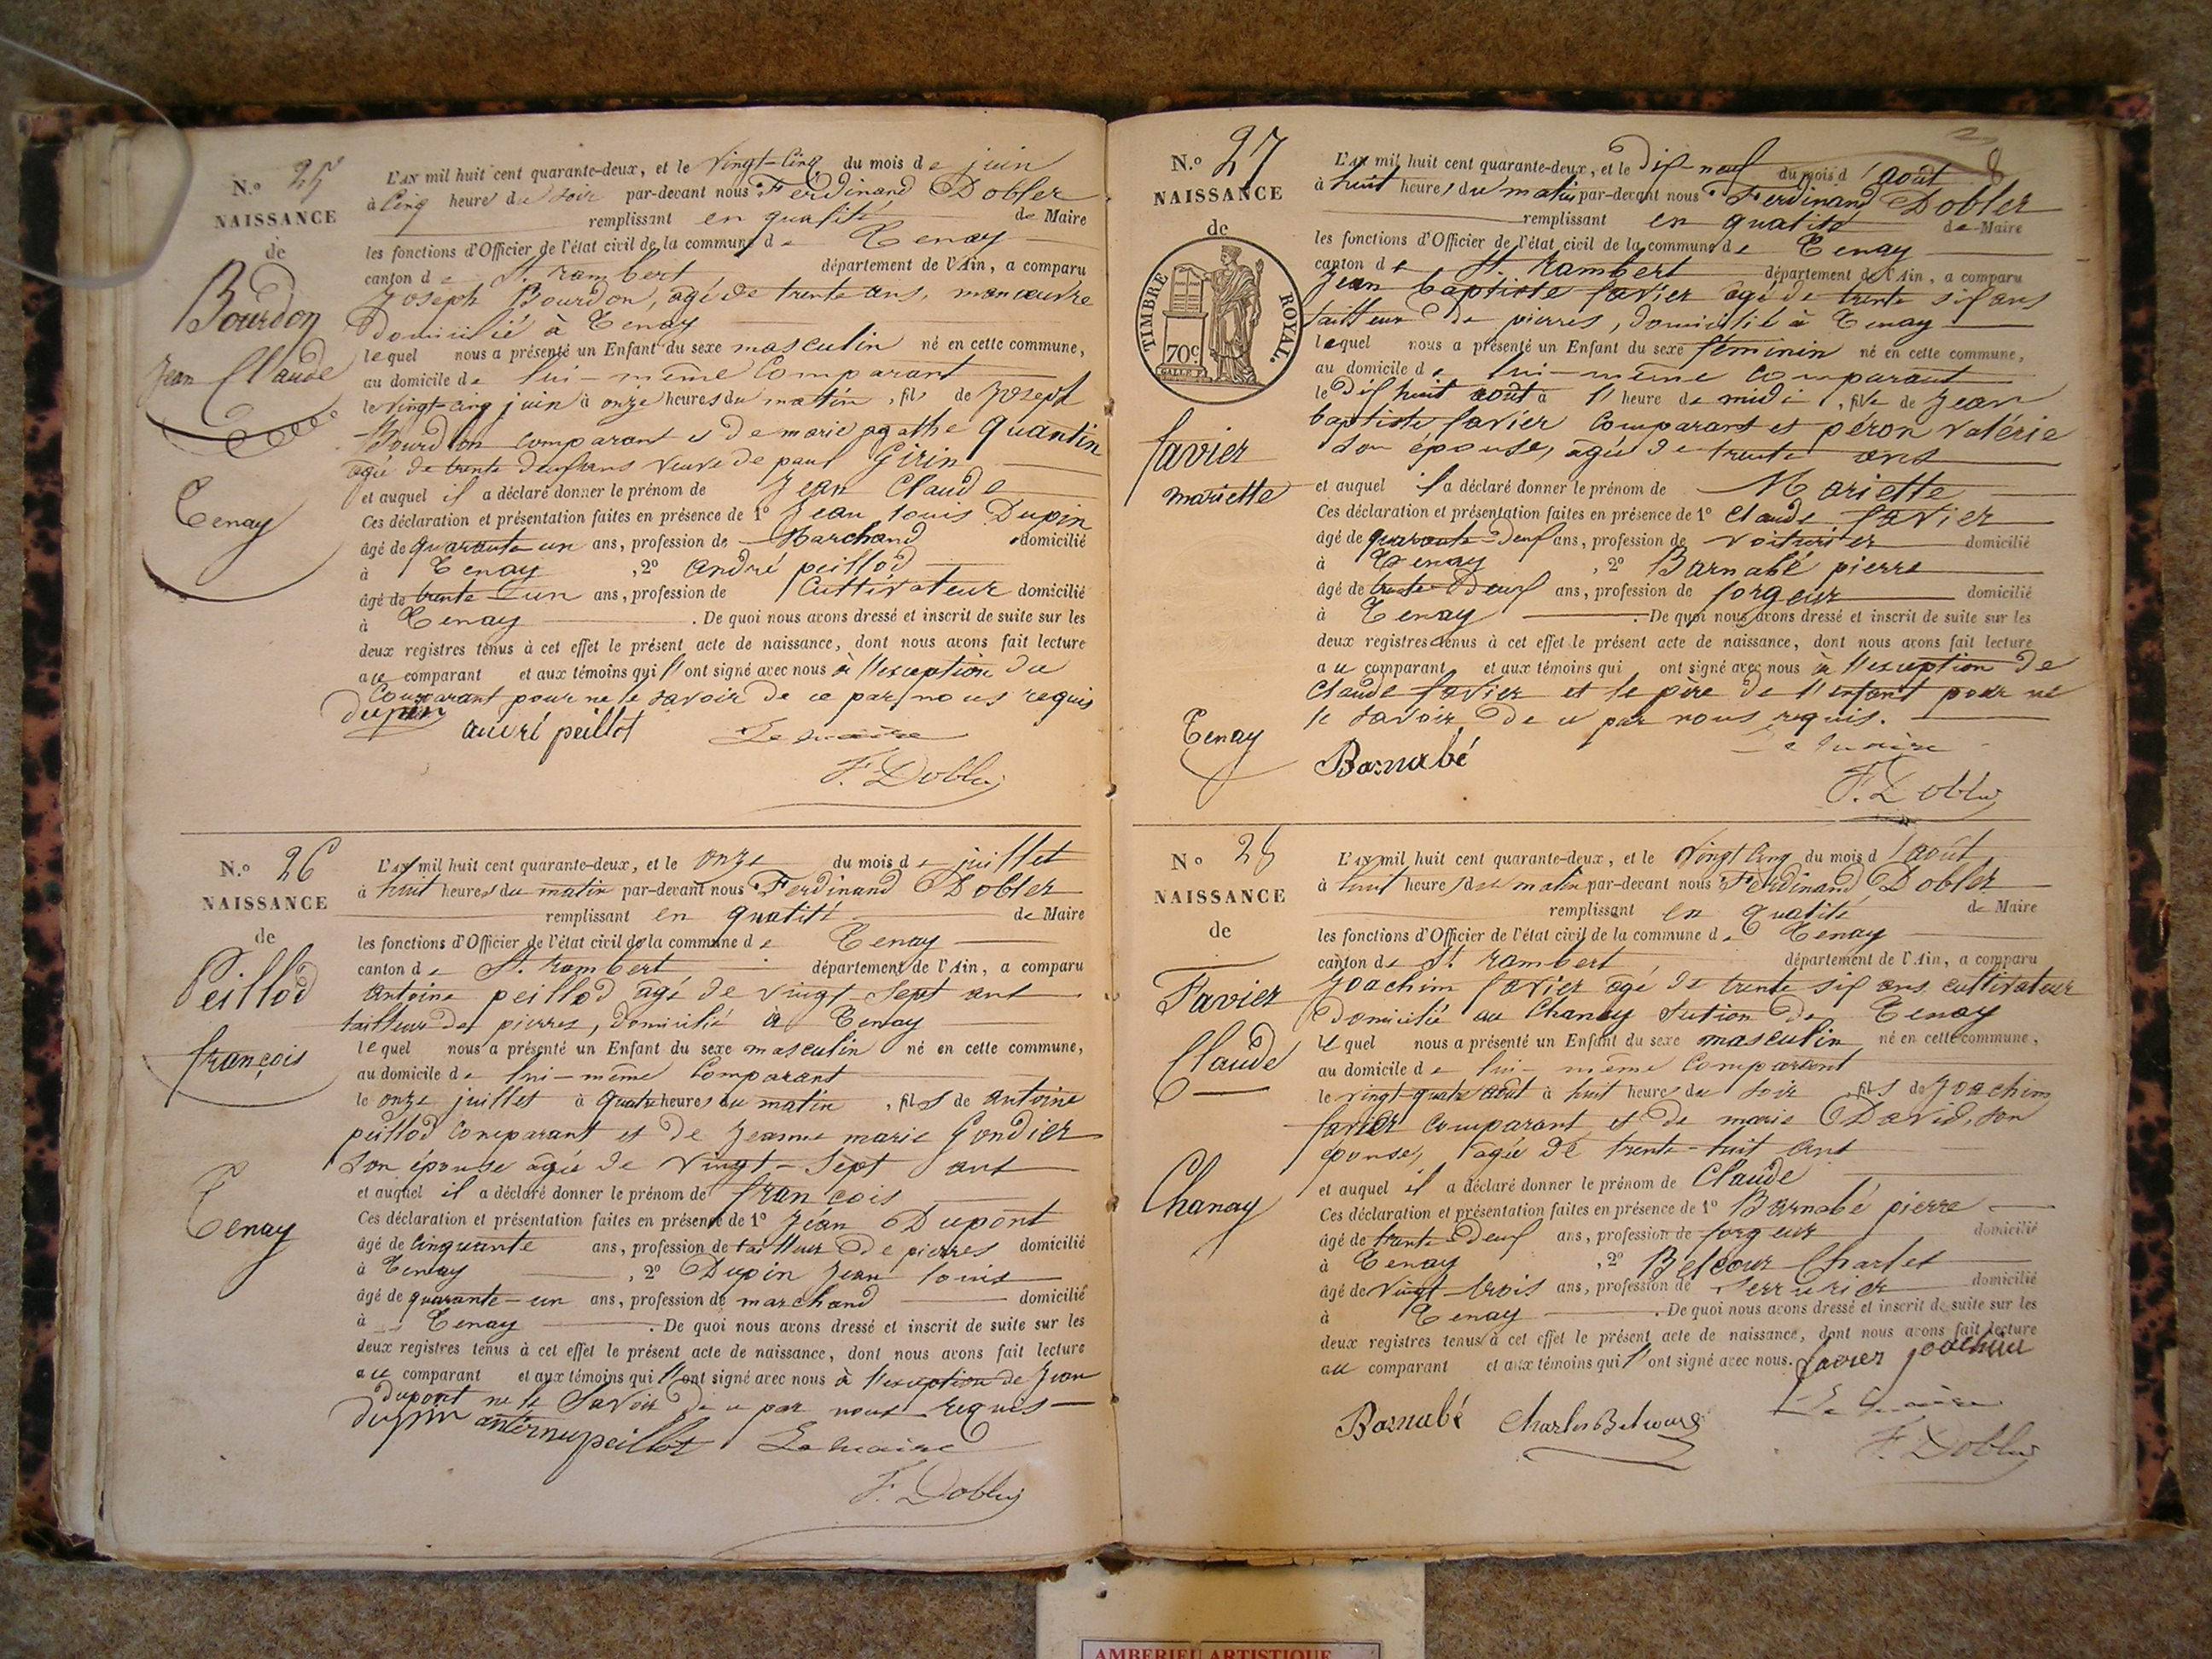 N.o 25
NAISSANCE
de
Bourdon
Jean Claude
Tenay
L'AN mil huit cent quarante-deux, et le vingt-cinq du mois de juin
à cinq heure du soir par-devant nous Ferdinand Dobler
remplissant en qualité de Maire
les fonctions d'Officier de l'état civil de la commune de Tenay
canton de St. rambert département de l'Ain, a comparu
Joseph Bourdon, agé de trente ans, manœuvre
domicilié à Tenay
lequel nous a présenté un Enfant du sexe masculin né en cette commune,
au domicile de lui-même Comparant
le vingt-cinq juin à onze heures du matin, fils de Joseph
Bourdon comparant et de marie agathe quantin
agée de trente deux ans veuve de paul Girin
et auquel il a déclaré donner le prénom de Jean Claude
Ces déclaration et présentation faites en présence de 1º Jean louis Dupin
âgé de quarante un ans, profession de Marchand domicilié
à Tenay, 2º andré peillod
âgé de trente un ans, profession de Cultivateur domicilié
à Tenay. De quoi nous avons dressé et inscrit de suite sur les
deux registres tenus à cet effet le présent acte de naissance, dont nous avons fait lecture
au comparant et aux témoins qui l'ont signé avec nous à l'exception du
Comparant pour ne le savoir de ce par nous requis
dupin
andré peillot Le maire
F. Dobler
N.o 26
NAISSANCE
de
Peillod
françois
Tenay
L'AN mil huit cent quarante-deux, et le onze du mois de juillet
à huit heures du matin par-devant nous Ferdinand Dobler
remplissant en qualité de Maire
les fonctions d'Officier de l'état civil de la commune de Tenay
canton de St. rambert département de l'Ain, a comparu
antoine peillod agé de vingt-sept ans
tailleur de pierres, domicilié à Tenay
lequel nous a présenté un Enfant du sexe masculin né en cette commune,
au domicile de lui-même Comparant
le onze juillet à quatre heures du matin, fils de antoine
peillod comparant et de jeanne marie Gondier
son épouse agée de vingt-sept ans
et auquel il a déclaré donner le prénom de françois
Ces déclaration et présentation faites en présence de 1º Jean Dupont
âgé de cinquante ans, profession de tailleur de pierres domicilié
à Tenay, 2º Dupin Jean louis
âgé de quarante-un ans, profession de marchand domicilié
à Tenay. De quoi nous avons dressé et inscrit de suite sur les
deux registres tenus à cet effet le présent acte de naissance, dont nous avons fait lecture
au comparant et aux témoins qui l'ont signé avec nous à l'exception de Jean
dupont ne le savoir de ce par nous requis
dupin peillot Le maire
F. Dobler
N.o 27
NAISSANCE
de
TIMBRE ROYAL.
70c.
favier
mariette
Tenay
L'AN mil huit cent quarante-deux, et le dix-neuf du mois d'août
à huit heures du matin par-devant nous Ferdinand Dobler
remplissant en qualité de Maire
les fonctions d'Officier de l'état civil de la commune de Tenay
canton de St. rambert département de l'Ain, a comparu
Jean baptiste favier agé de trente six ans
tailleur de pierres, domicilié à Tenay
lequel nous a présenté un Enfant du sexe féminin né en cette commune,
au domicile de lui-même comparant
le dix huit août à l'heure de midi, fille de Jean
baptiste favier comparant et péron valérie
son épouse, agée de trente ans
et auquel il a déclaré donner le prénom de Mariette
Ces déclaration et présentation faites en présence de 1º Claude favier
âgé de quarante-deux ans, profession de voiturier domicilié
à Tenay, 2º Barnabé pierre
âgé de trente-deux ans, profession de forgeur domicilié
à Tenay. De quoi nous avons dressé et inscrit de suite sur les
deux registres tenus à cet effet le présent acte de naissance, dont nous avons fait lecture
au comparant et aux témoins qui ont signé avec nous à l'exception de
Claude favier et le père de l'enfant pour ne
le savoir de ce par nous requis.
Le maire
Barnabé
F. Dobler
N.o 28
NAISSANCE
de
Favier
Claude
Chanay
L'AN mil huit cent quarante-deux, et le vingt cinq du mois d'août
à huit heures du matin par-devant nous Ferdinand Dobler
remplissant en qualité de Maire
les fonctions d'Officier de l'état civil de la commune de Tenay
canton de St. rambert département de l'Ain, a comparu
Joachim favier agé de trente six ans cultivateur
domicilié au Chanay section de Tenay
lequel nous a présenté un Enfant du sexe masculin né en cette commune,
au domicile de lui-même Comparant
le vingt-quatre août à huit heures du soir, fils de Joachim
favier comparant et de marie David, son
épouse, agée de trente-huit ans
et auquel il a déclaré donner le prénom de Claude
Ces déclaration et présentation faites en présence de 1º Barnabé pierre
âgé de trente-deux ans, profession de forgeur domicilié
à Tenay, 2º Belcour Charles
âgé de vingt-trois ans, profession de serrurier domicilié
à Tenay. De quoi nous avons dressé et inscrit de suite sur les
deux registres tenus à cet effet le présent acte de naissance, dont nous avons fait lecture
au comparant et aux témoins qui l'ont signé avec nous. favier joachim
Le maire
Barnabé Charles Belcour
F. Dobler
AMBERIEU ARTISTIQUE